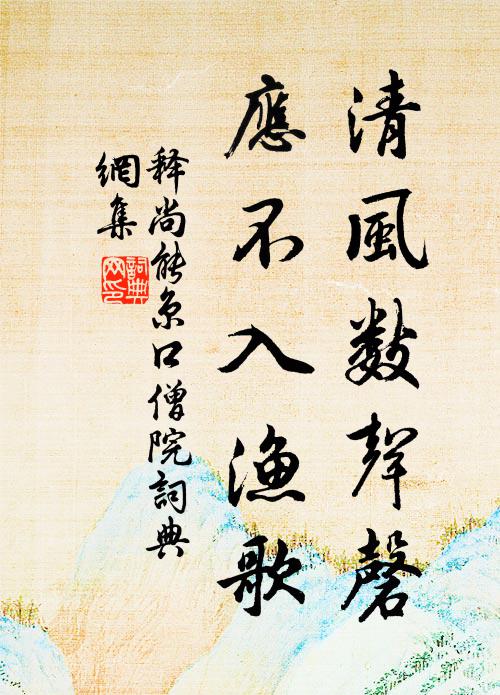 清風数聲磬
應不入漁歌
释尚能京口僧院詞典
網集
詞典
网印